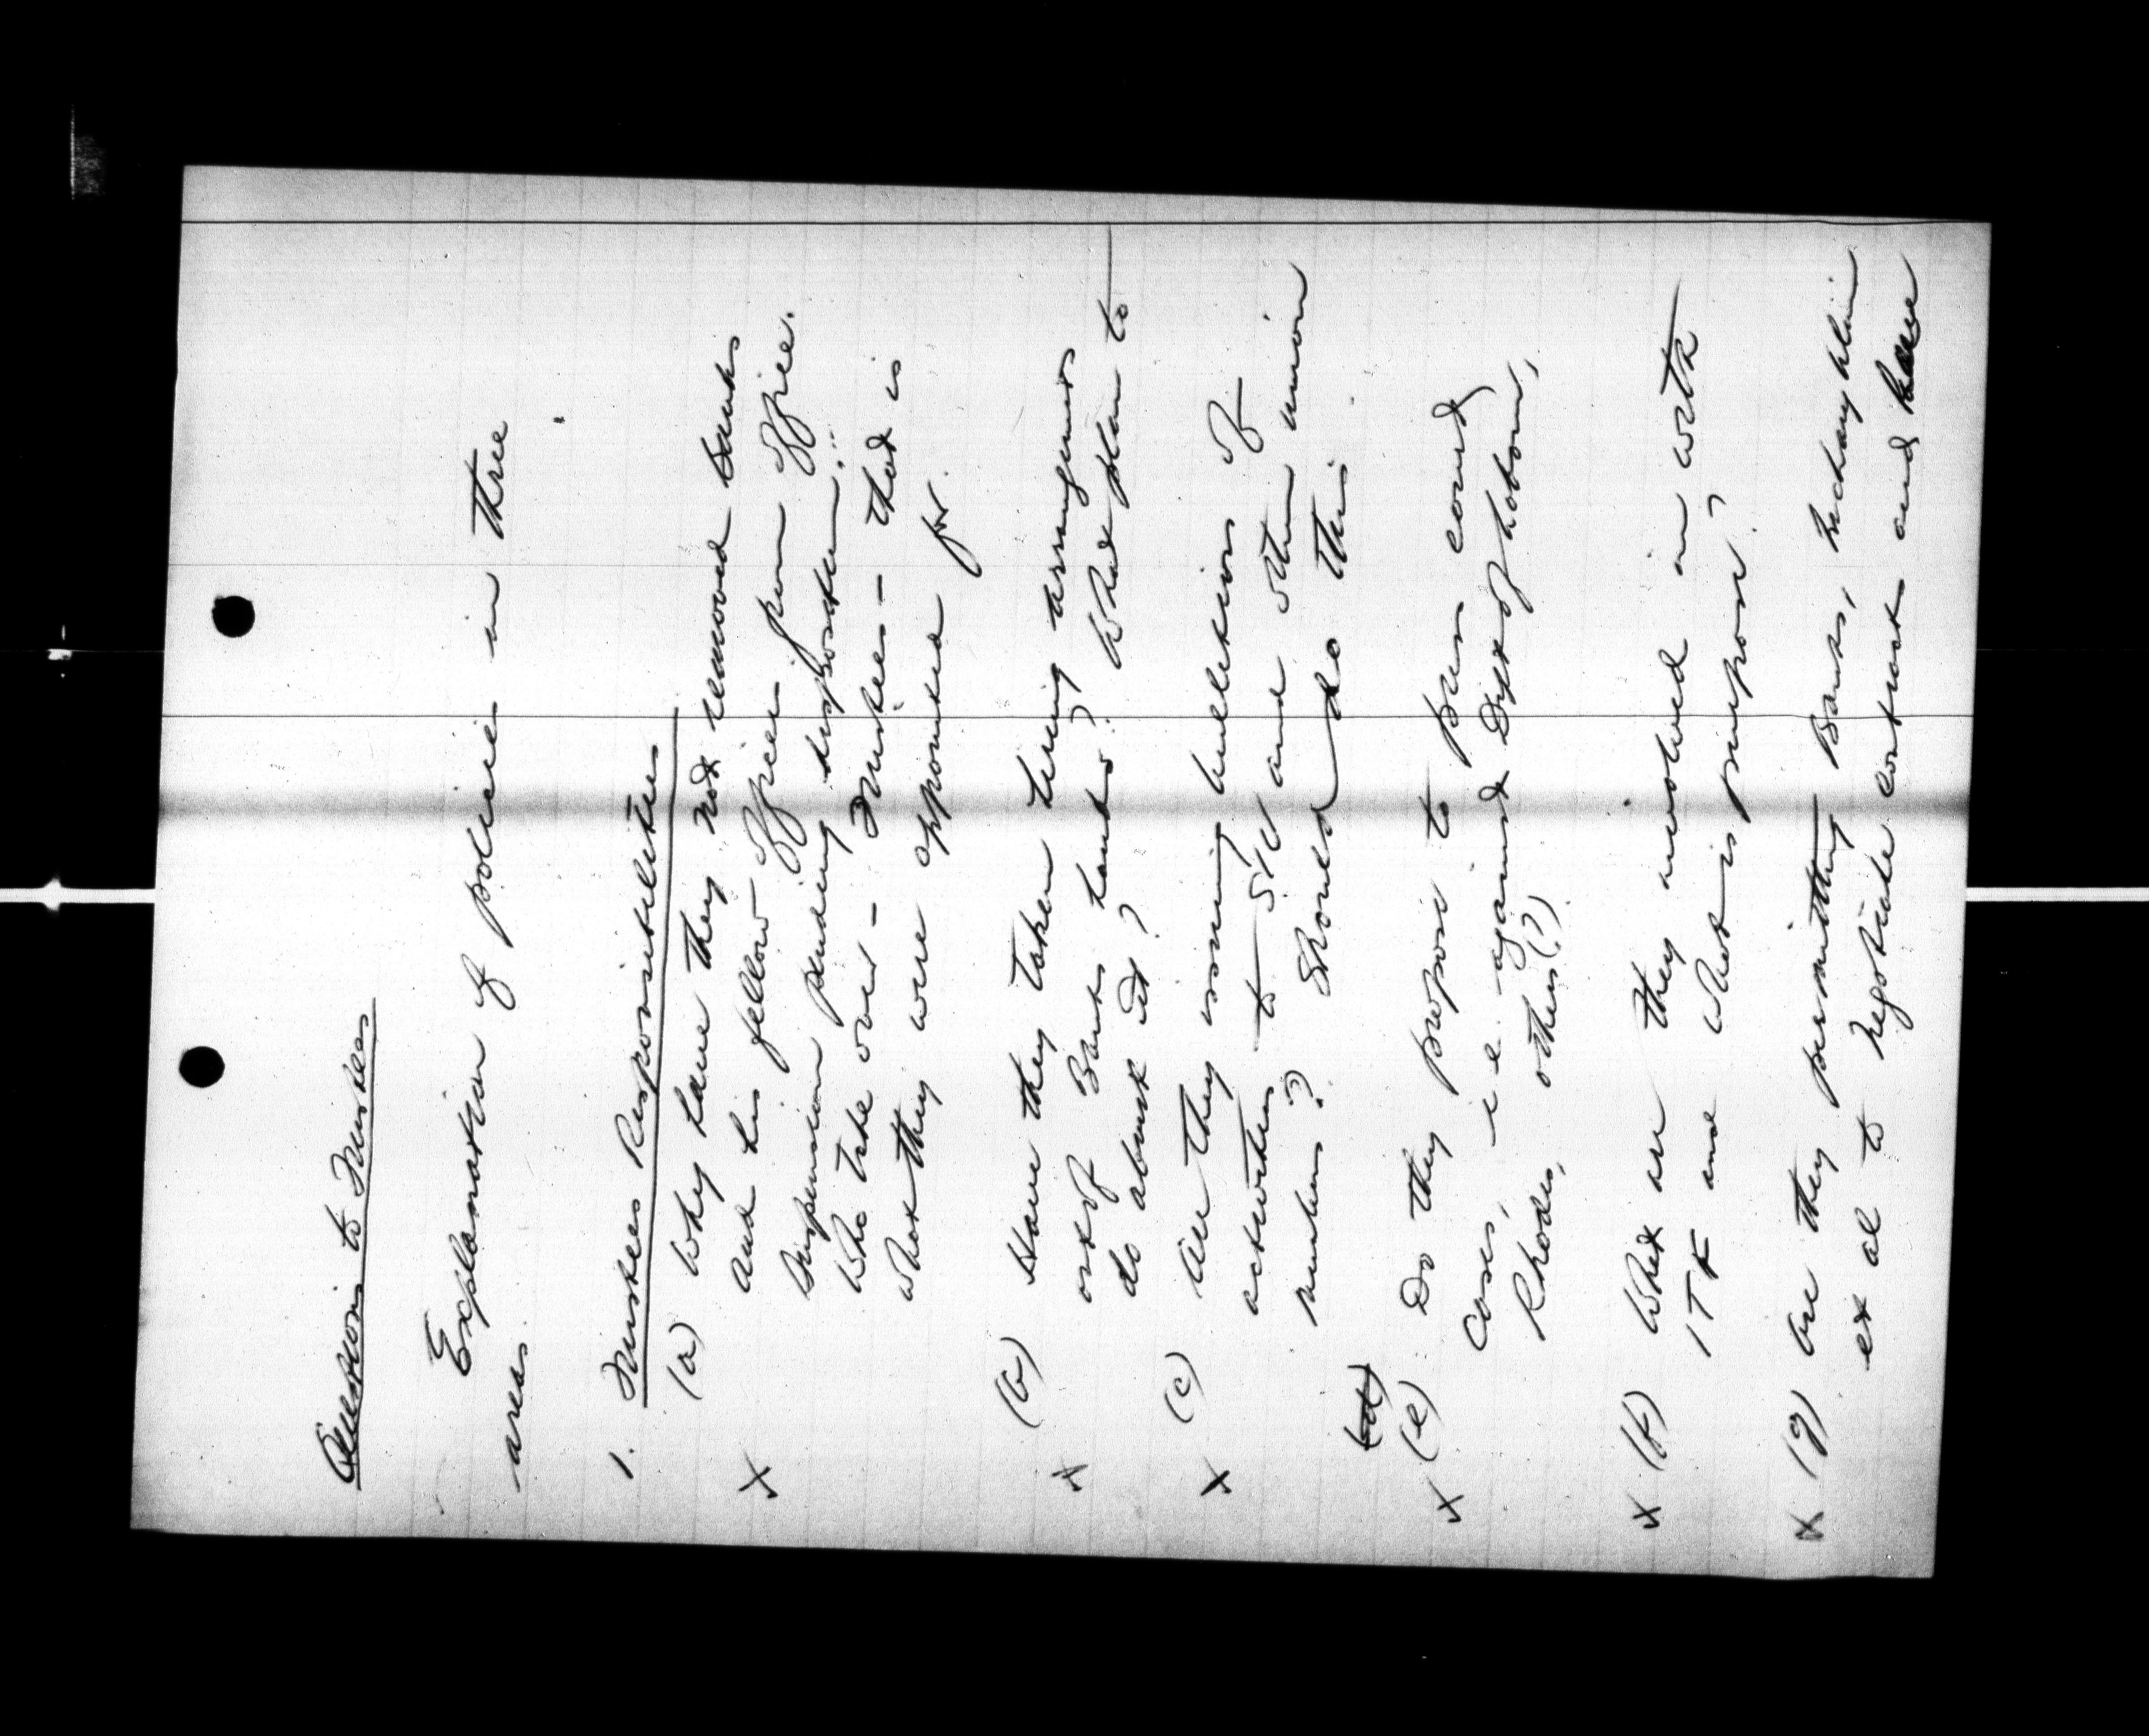 Questions to Trustees
Explanation of policies in three
areas.
1. Trustees Responsibilities
X (a) Why have they not removed Banks
and his fellow officers from office.
Suspension pending disposition."
Who take over - Trustees - that is
what they were appointed for.
X (b) Have they taken hiring arrangements
out of Banks hands? What plan to
do about it?
X (c) Are they issuing bulletins of
activities to SIU and other union
members? Should do this
(d)
X (e) Do they propose to press court
cases, i.e. against Dept of Labour,
Rhodes, others (?)
X (f) What are they involved in with
ITF and what is purpose?
X (g) Are they permitting Banks, McLaughlin
et al to negotiate contracts and have